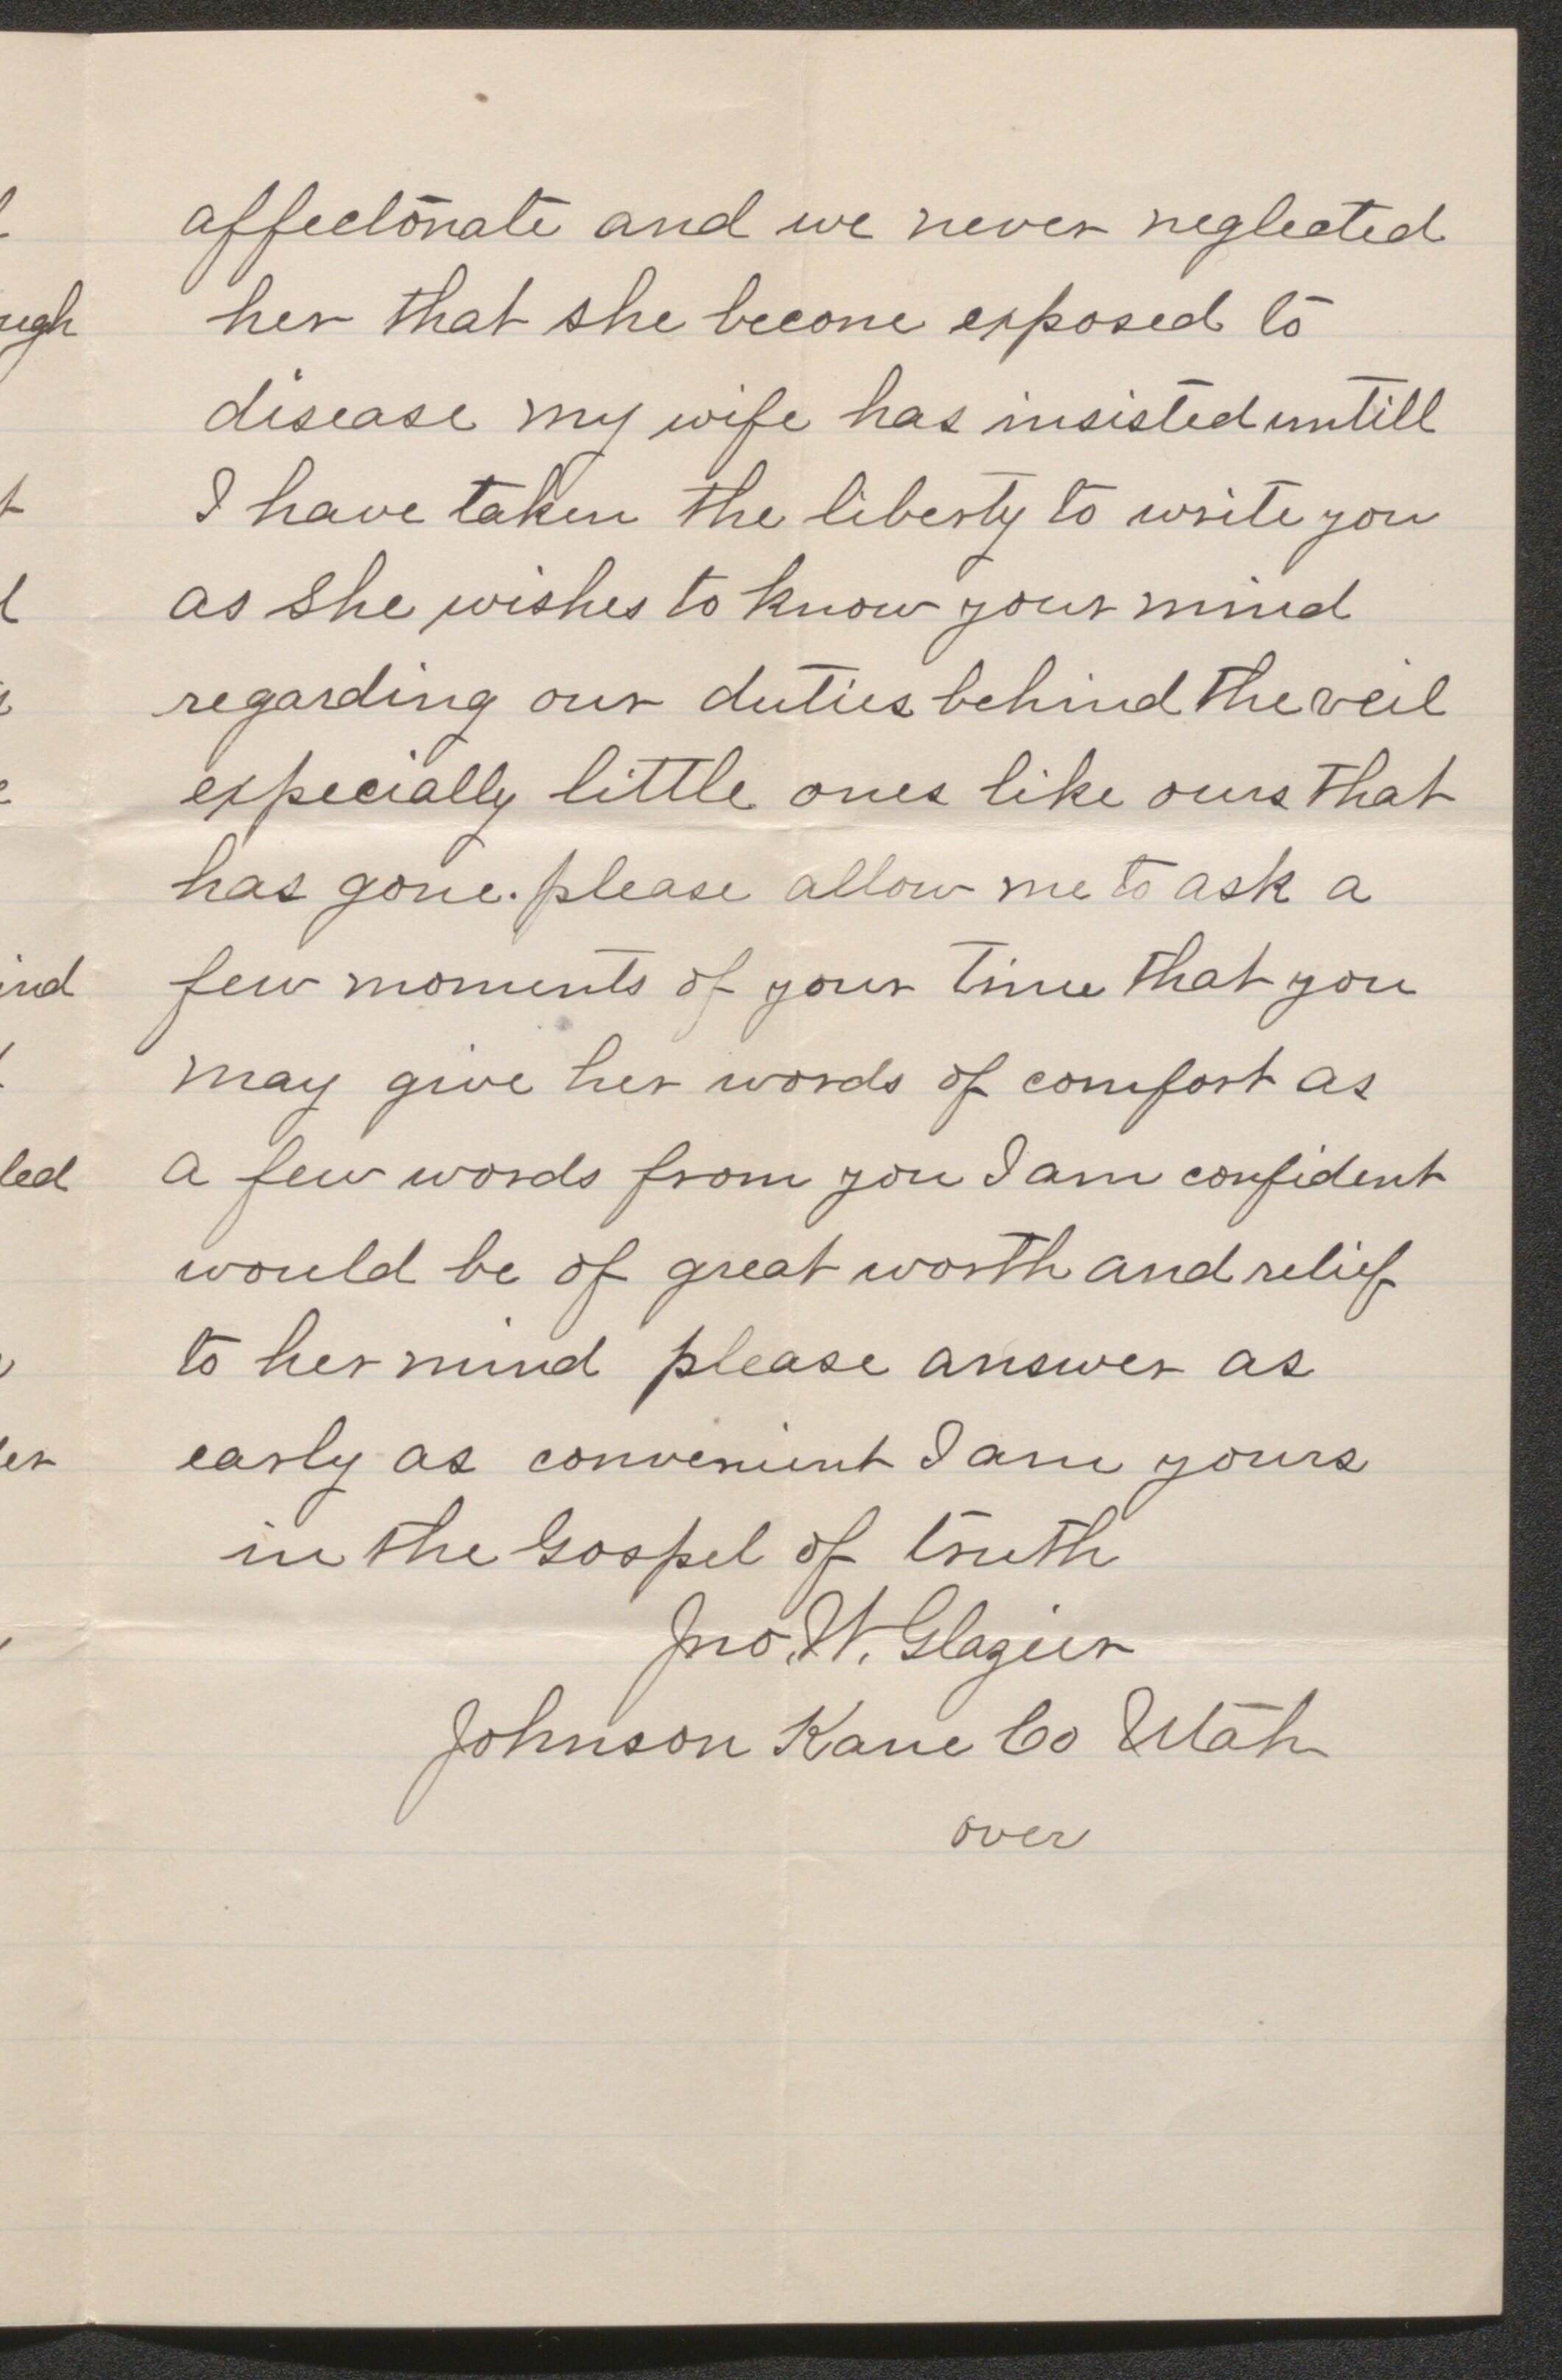 affectonate and we never neglected
her that she become exposed to
disease my wife has insisted untill
I have taken the liberty to write you
as she wishes to know your mind
regarding our duties behind the veil
especially little ones like ours that
has gone. please allow me to ask a
few moments of your time that you
may give her words of comfort as
a few words from you I am confident
would be of great worth and relief
to her mind please answer as
early as convenient I am yours
in the Gospel of truth
Jno. W. Glazier
Johnson Kane Co Utah
over